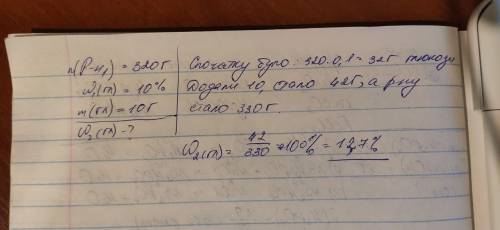 m(р-ну) = 320г
ω₁(гл) = 10%
m(гл) = 10г
ω₂(гл) - ?
Спочатку було: 320·0,1 = 32г глюкози
Додали 10, стало 42г, а р-ну
стало 330г.
ω₂(гл) = 42/330 · 100% = 12,7%